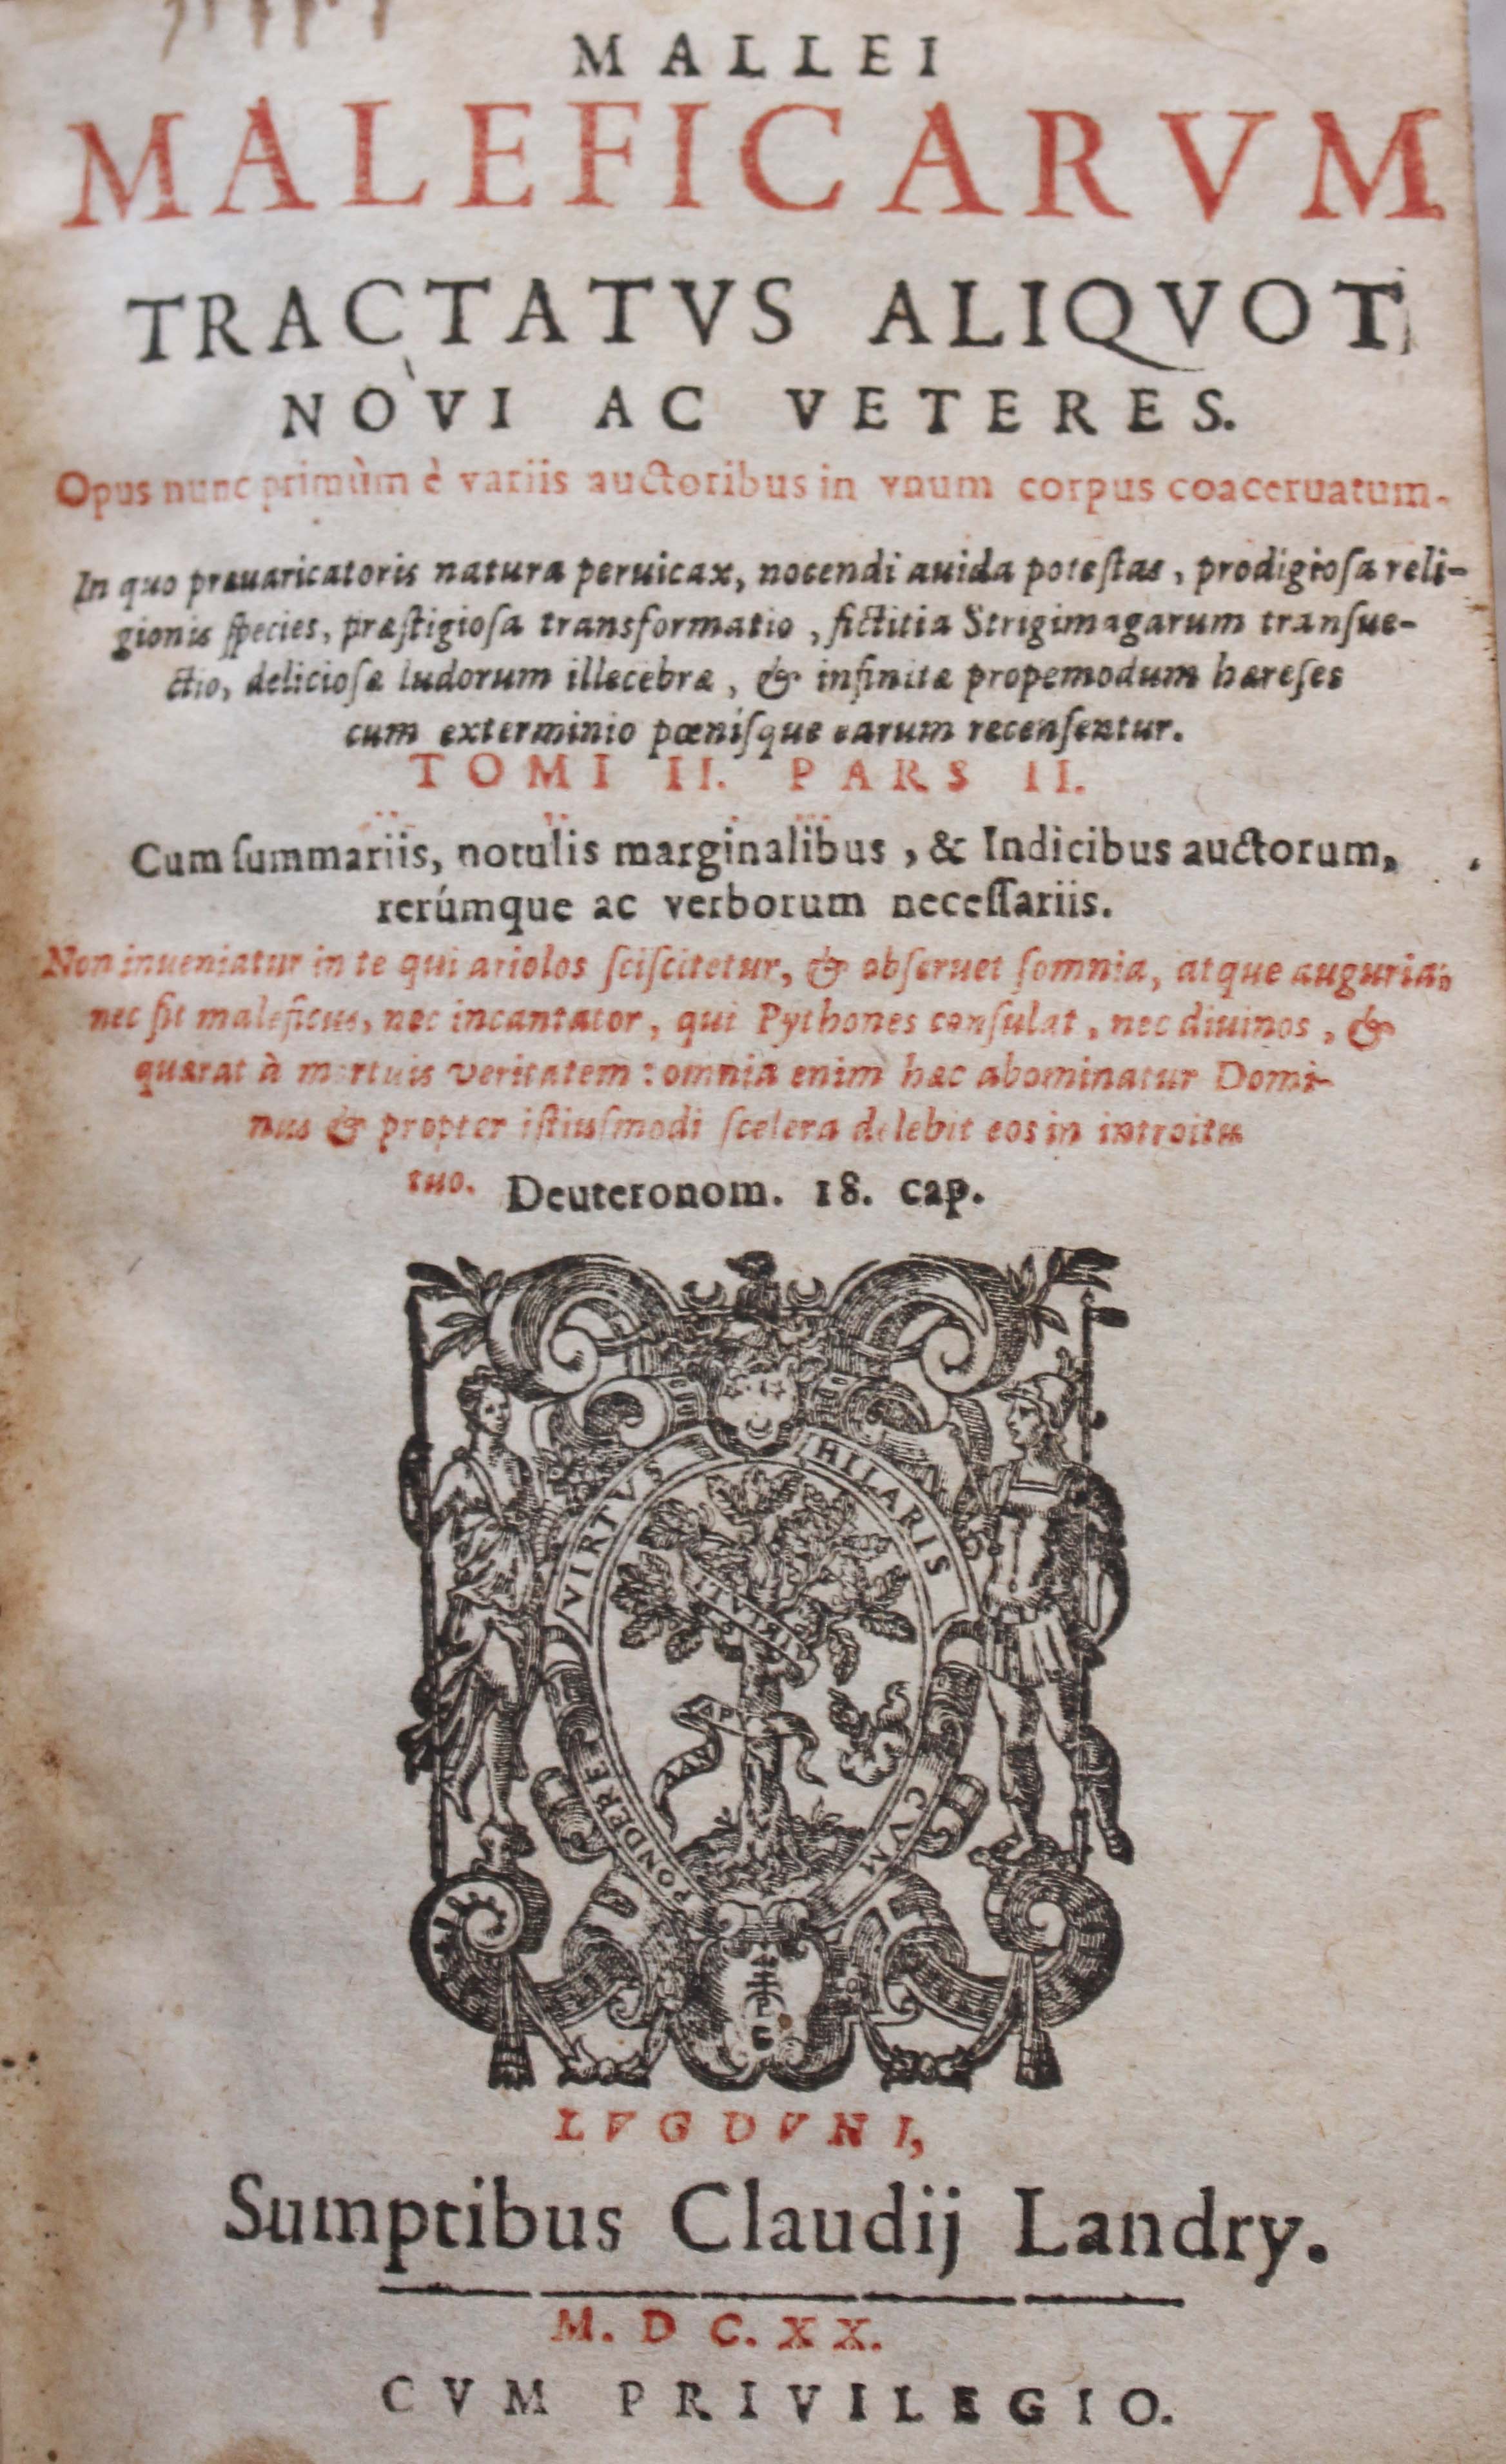 MALLEI
MALEFICARVM
TRACTATVS ALIQVOT
NOVI AC VETERES.
Opus nunc primùm è variis auctoribus in vnum corpus coaceruatum.
In quo præuaricatoris natura peruicax, nocendi auida potestas, prodigiosa reli-
gionis species, præstigiosa transformatio, fictitia Strigimagarum transue-
ctio, deliciosæ ludorum illecebræ, & infinitæ propemodum hæreses
cum exterminio pœnisque earum recensentur.
TOMI II. PARS II.
Cum summariis, notulis marginalibus, & Indicibus auctorum,
rerúmque ac verborum necessariis.
Non inueniatur in te qui ariolos sciscitetur, & obseruet somnia, atque auguria,
nec sit maleficus, nec incantator, qui Pythones consulat, nec diuinos, &
quærat à mortuis veritatem: omnia enim hæc abominatur Domi-
nus & propter istiusmodi scelera delebit eos in introitu
tuo. Deuteronom. 18. cap.
VIRTVS HILARIS
PONDERE CVM
LVGDVNI,
Sumptibus Claudij Landry.
M. DC. XX.
CVM PRIVILEGIO.